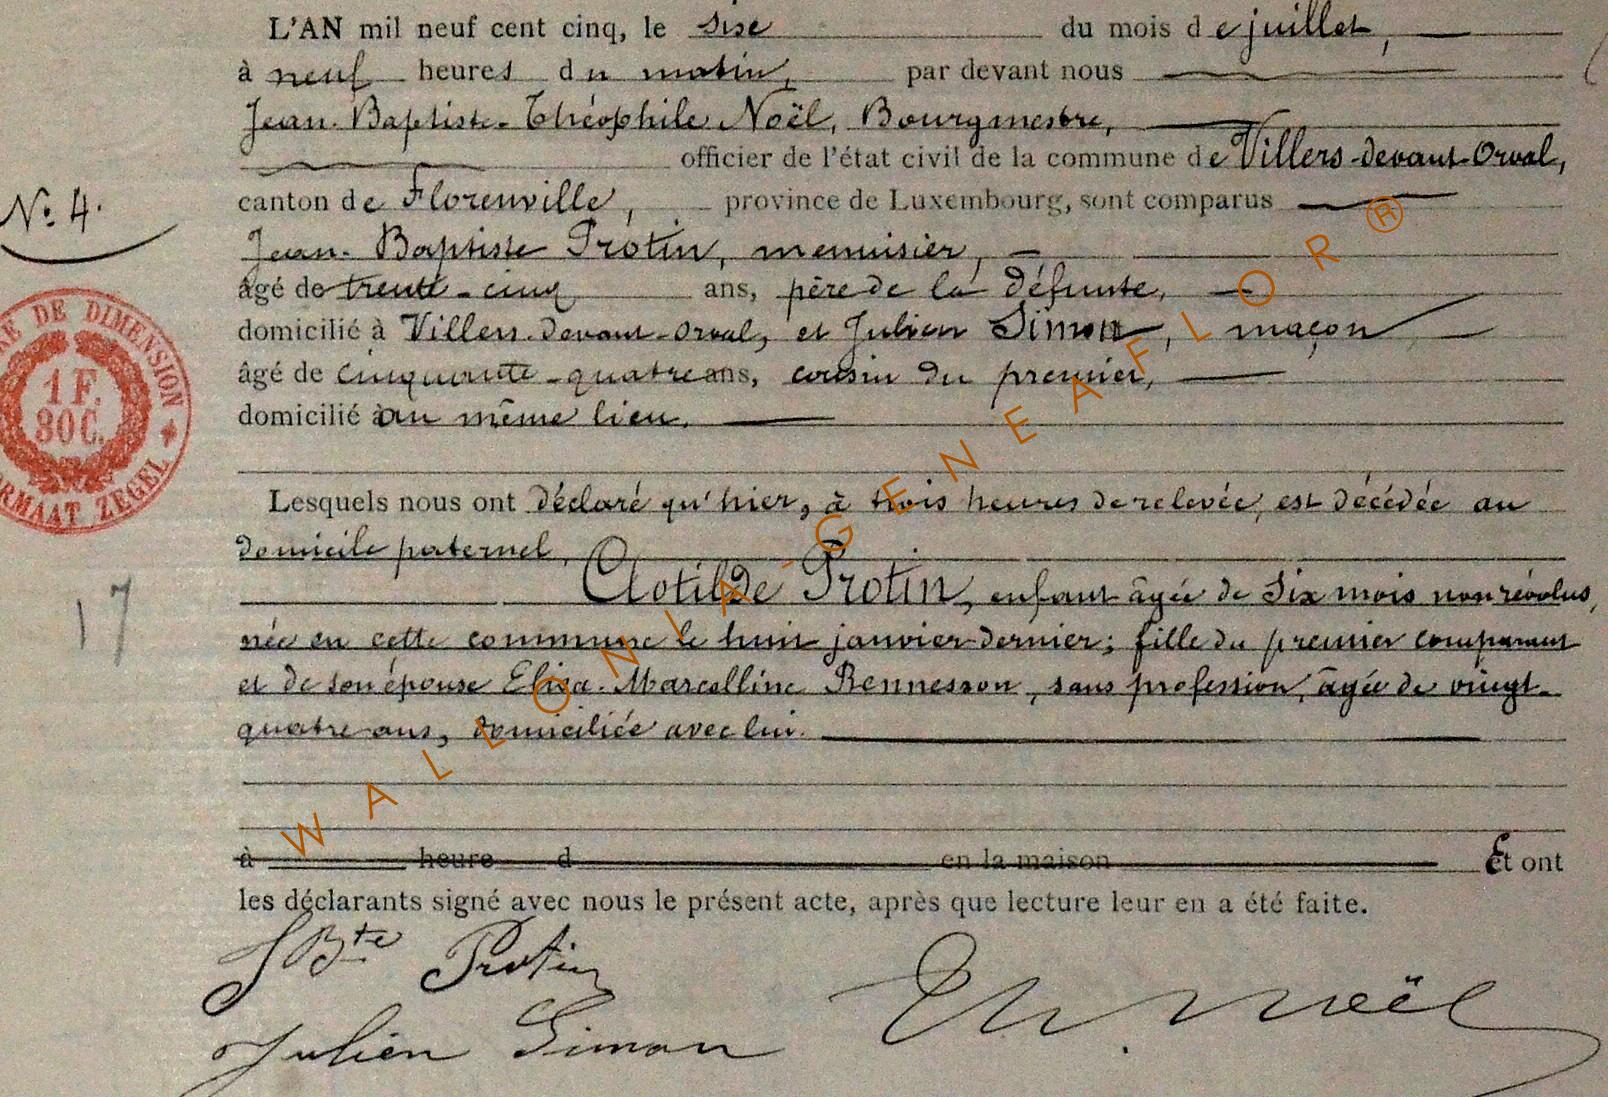 L'AN mil neuf cent cinq, le six du mois de juillet,
à neuf heures du matin, par devant nous
Jean-Baptiste-Théophile Noël, Bourgmestre,
officier de l'état civil de la commune de Villers-devant-Orval,
canton de Florenville, province de Luxembourg, sont comparus
N° 4.
Jean-Baptiste Protin, menuisier,
âgé de trente-cinq ans, père de la défunte,
domicilié à Villers-devant-Orval, et Julien Simon, maçon
âgé de cinquante-quatre ans, cousin du premier,
domicilié au même lieu.
DE DIMENSION
1 F.
80 C.
FORMAAT ZEGEL
Lesquels nous ont déclaré qu'hier, à trois heures de relevée, est décédée au
domicile paternel,
Clotilde Protin, enfant âgée de six mois non révolus,
née en cette commune le huit janvier dernier; fille du premier comparant
et de son épouse Elisa-Marcelline Bennesson, sans profession, âgée de vingt-
quatre ans, domiciliée avec lui.
17
à heure d en la maison Et ont
les déclarants signé avec nous le présent acte, après que lecture leur en a été faite.
J Bte Protin
Th. Noël
Julien Simon
WALLONIA-GENEAFLOR®